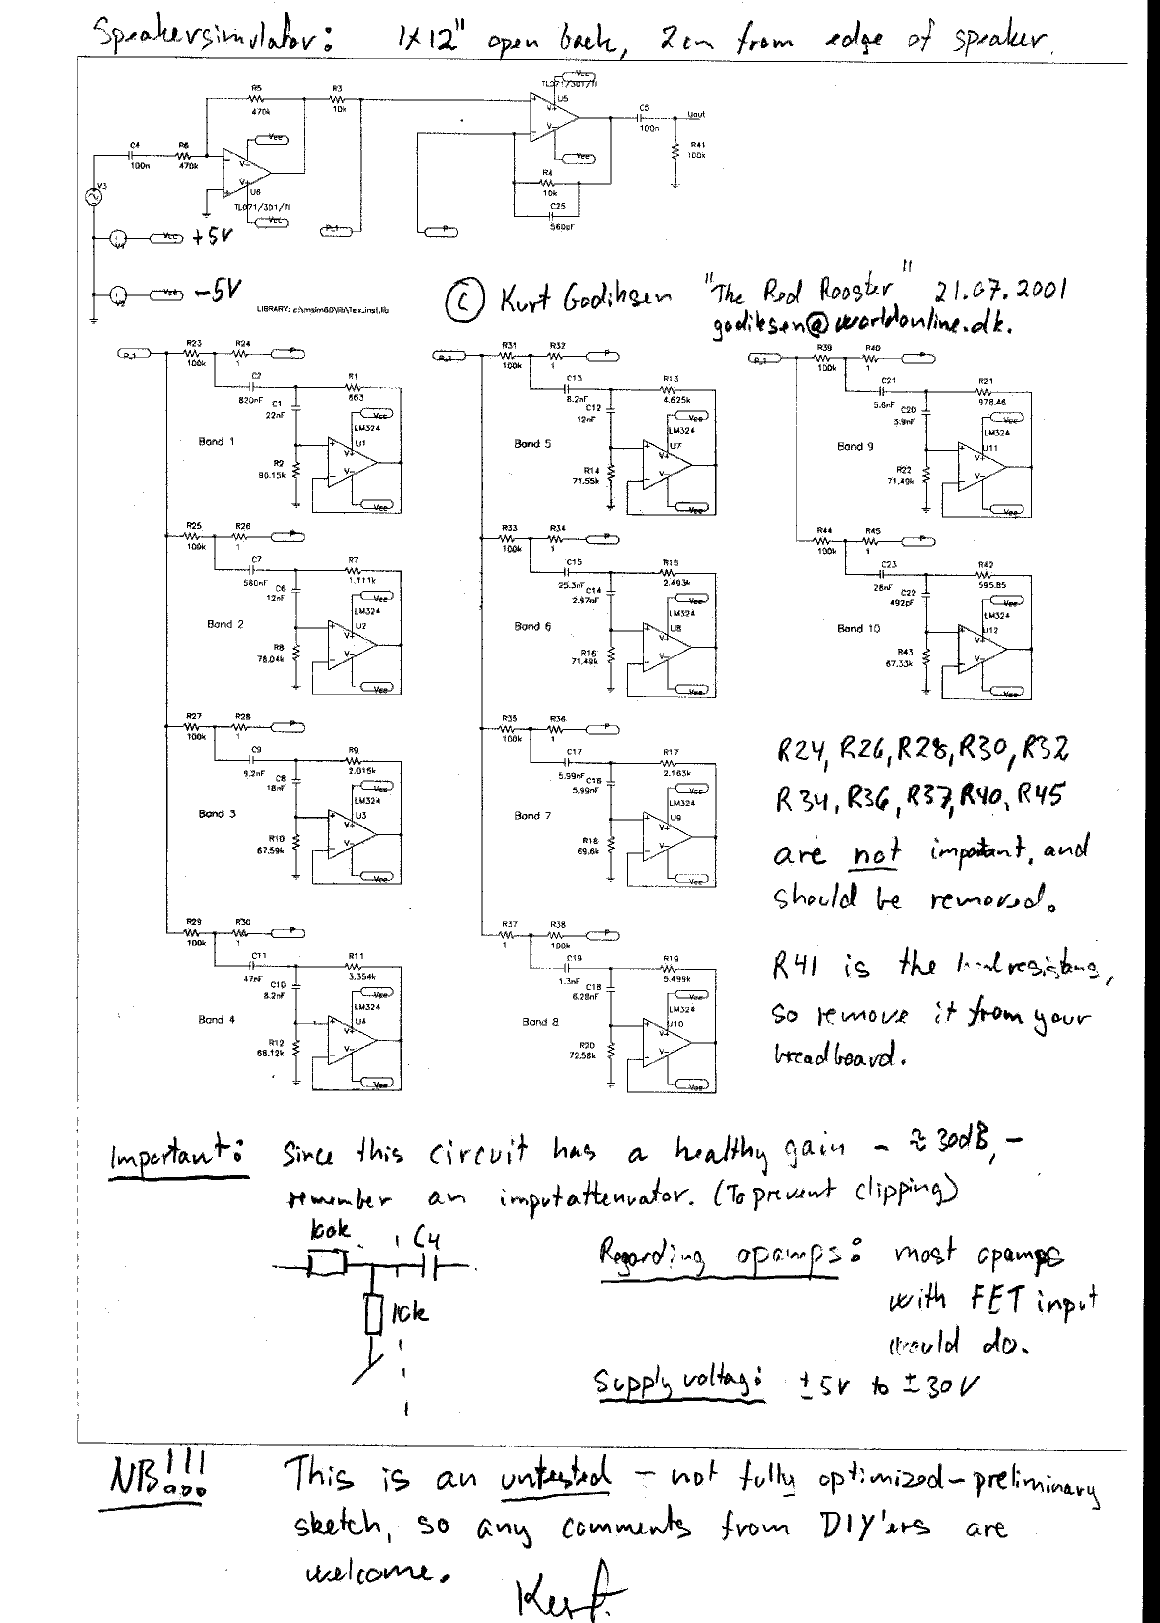 Speakersimulator: 1x12" open back, 2cm from edge of speaker.
R5
470k
R3
10k
C4
100n
R6
470k
Vcc
V-
V+
U6
TL071/301/TI
Vcc
V3
P_1
TL071/301/TI
Vcc
U5
V+
V-
Vcc
R4
10k
C25
560pF
P
C5
100n
Uout
R41
100k
Vcc +5V
-5V
LIBRARY: c:\msim60\lib\Tex_inst.lib
© Kurt Godiksen "The Red Rooster" 21.07.2001
godiksen@worldonline.dk.
P_1
R23
100k
R24
1
P
C2
820nF
C1
22nF
R1
663
Vcc
LM324
U1
V+
V-
Vee
Band 1
R2
80.15k
R25
100k
R26
1
P
C7
560nF
C6
12nF
R7
1.111k
Vcc
LM324
U2
V+
V-
Vee
Band 2
R8
76.04k
R27
100k
R28
1
P
C9
9.2nF
C8
18nF
R9
2.015k
Vcc
LM324
U3
V+
V-
Vee
Band 3
R10
67.59k
R29
100k
R30
1
P
C11
47nF
C10
8.2nF
R11
3.354k
Vcc
LM324
U4
V+
V-
Vee
Band 4
R12
68.12k
P_1
R31
100k
R32
1
P
C13
8.2nF
C12
12nF
R13
4.625k
Vcc
LM324
U7
V+
V-
Vee
Band 5
R14
71.55k
R33
100k
R34
1
P
C15
25.3nF
C14
2.97nF
R15
2.493k
Vcc
LM324
U8
V+
V-
Vee
Band 6
R16
71.49k
R35
100k
R36
1
P
C17
5.99nF
C16
5.99nF
R17
2.163k
Vcc
LM324
U9
V+
V-
Vee
Band 7
R18
69.6k
R37
1
R38
100k
P
C19
1.3nF
C18
6.28nF
R19
5.499k
Vcc
LM324
U10
V+
V-
Vee
Band 8
R20
72.56k
P_1
R39
100k
R40
1
P
C21
5.6nF
C20
3.9nF
R21
978.46
Vcc
LM324
U11
V+
V-
Vee
Band 9
R22
71.49k
R44
100k
R45
1
P
C23
28nF
C22
492pF
R42
595.85
Vcc
LM324
U12
V+
V-
Vee
Band 10
R43
67.33k
R24, R26, R28, R30, R32
R34, R36, R37, R40, R45
are not important, and
should be removed.
R41 is the
so remove it from your
breadboard.
Important: Since this circuit has a healthy gain - ≈ 30dB, -
remember an inputattenuator. (To prevent clipping)
100k C4
10k
Regarding opamps: most opamps
with FET input
would do.
Supply voltage: ±5V to ±30V
NB!!! This is an untested - not fully optimized - preliminary
sketch, so any comments from DIY'ers are
welcome.
Kurt.